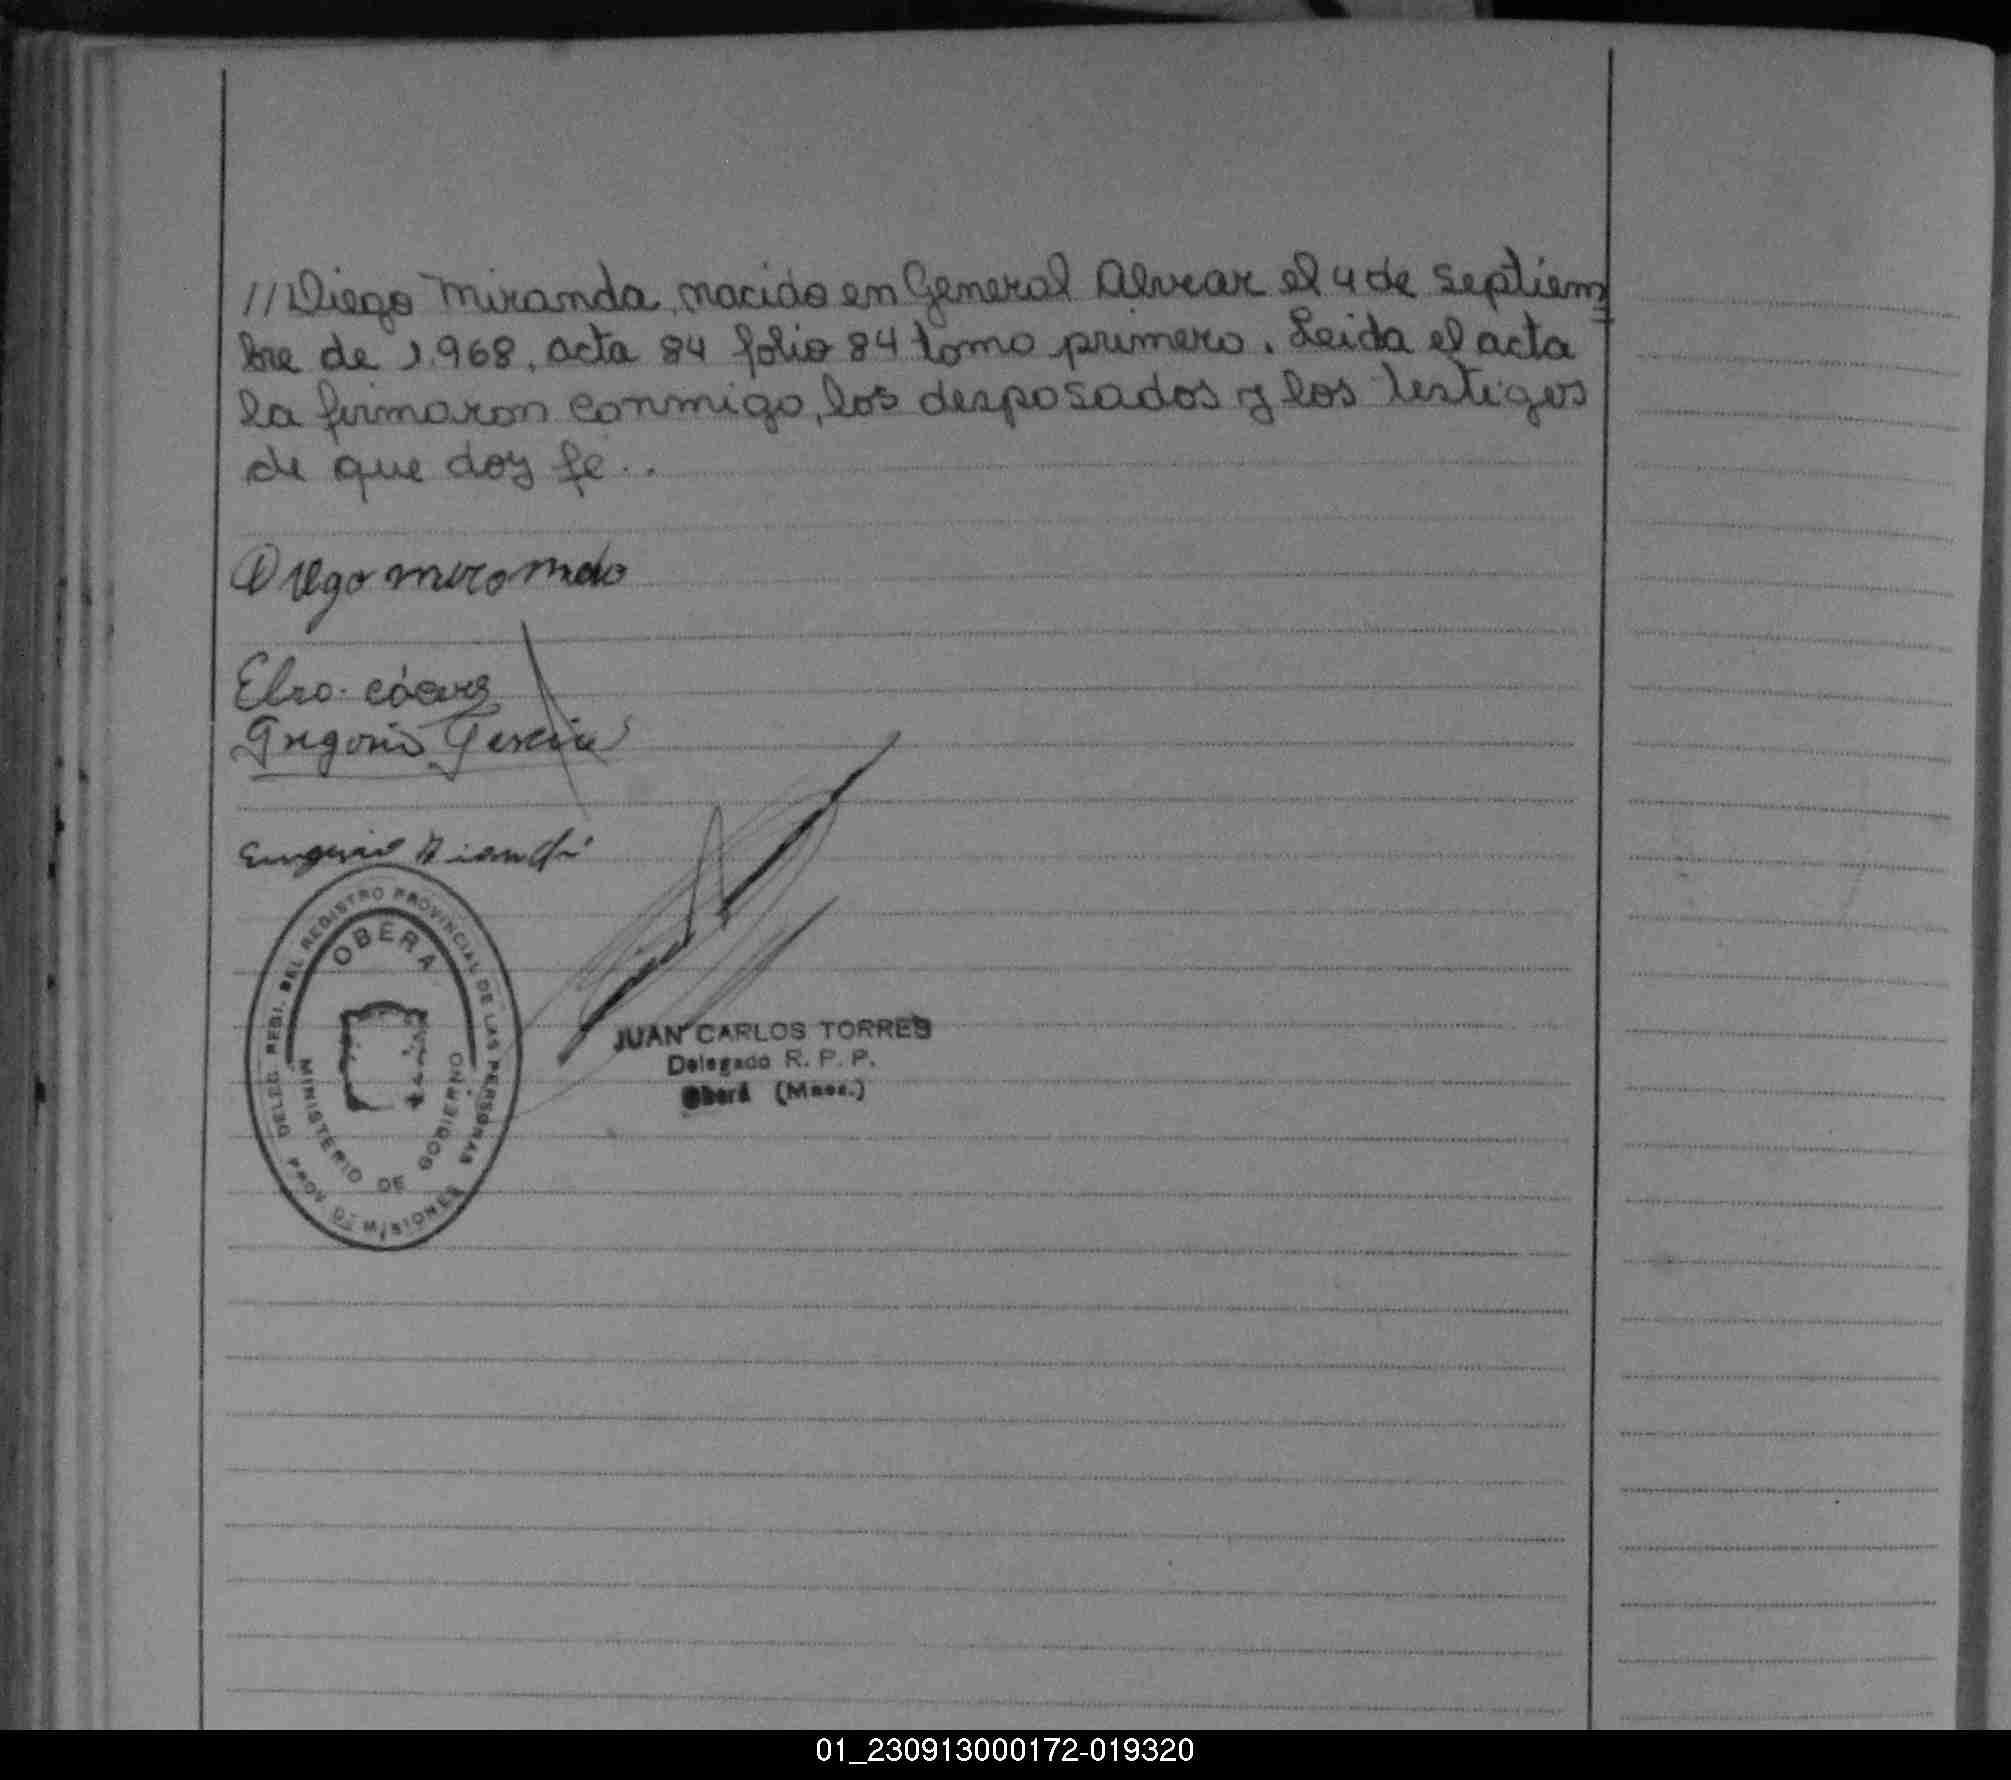 //Diego Miranda, nacido en General Alvear el 4 de Septiem
bre de 1.968, acta 84 folio 84 tomo primero. Leida el acta
la firmaron conmigo, los desposados y los testigos
de que doy fé..
Diego miranda
Elsa
Gregorio
Eugenio
DELEG. REGI. DEL REGISTRO PROVINCIAL DE LAS PERSONAS
OBERA
MINISTERIO DE GOBIERNO
PROV. DE MISIONES
JUAN CARLOS TORRES
Delegado R. P. P.
Oberá (Mnes.)
01_230913000172-019320